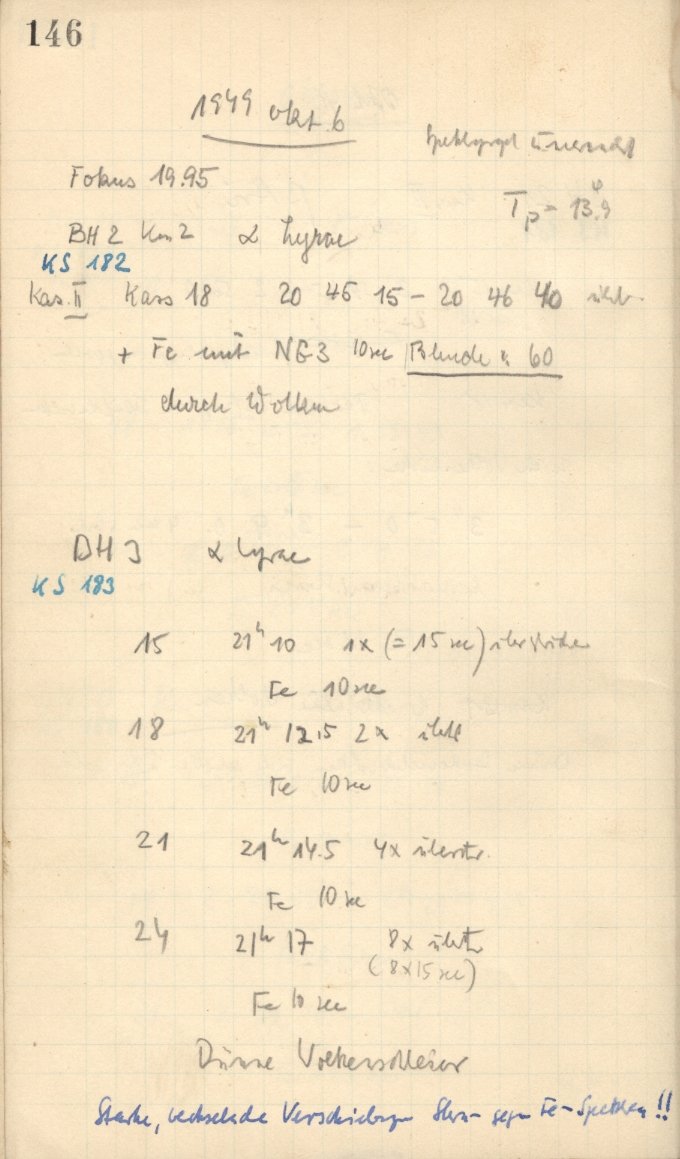 146
1949 Okt. 6
Fokus 19.95
Tp = 13.9
BH 2 Kas 2 α Lyrae
KS 182
Kas. II Kass 18 20 45 15 – 20 46 40
+ Fe mit NG3 10 sec Blende 60
durch Wolken
BH 3 α Lyrae
KS 183
15 21h 10 1x (= 15 sec) überstrichen
Fe 10 sec
18 21h 12.5 2x
Fe 10 sec
21 21h 14.5 4x überstr.
Fe 10 sec
24 21h 17 8x überstr
(8x15 sec)
Fe 10 sec
Dünne Wolkenschleier
Starke, wechselnde Verschiebungen Stern- gegen Fe-Spektrum!!